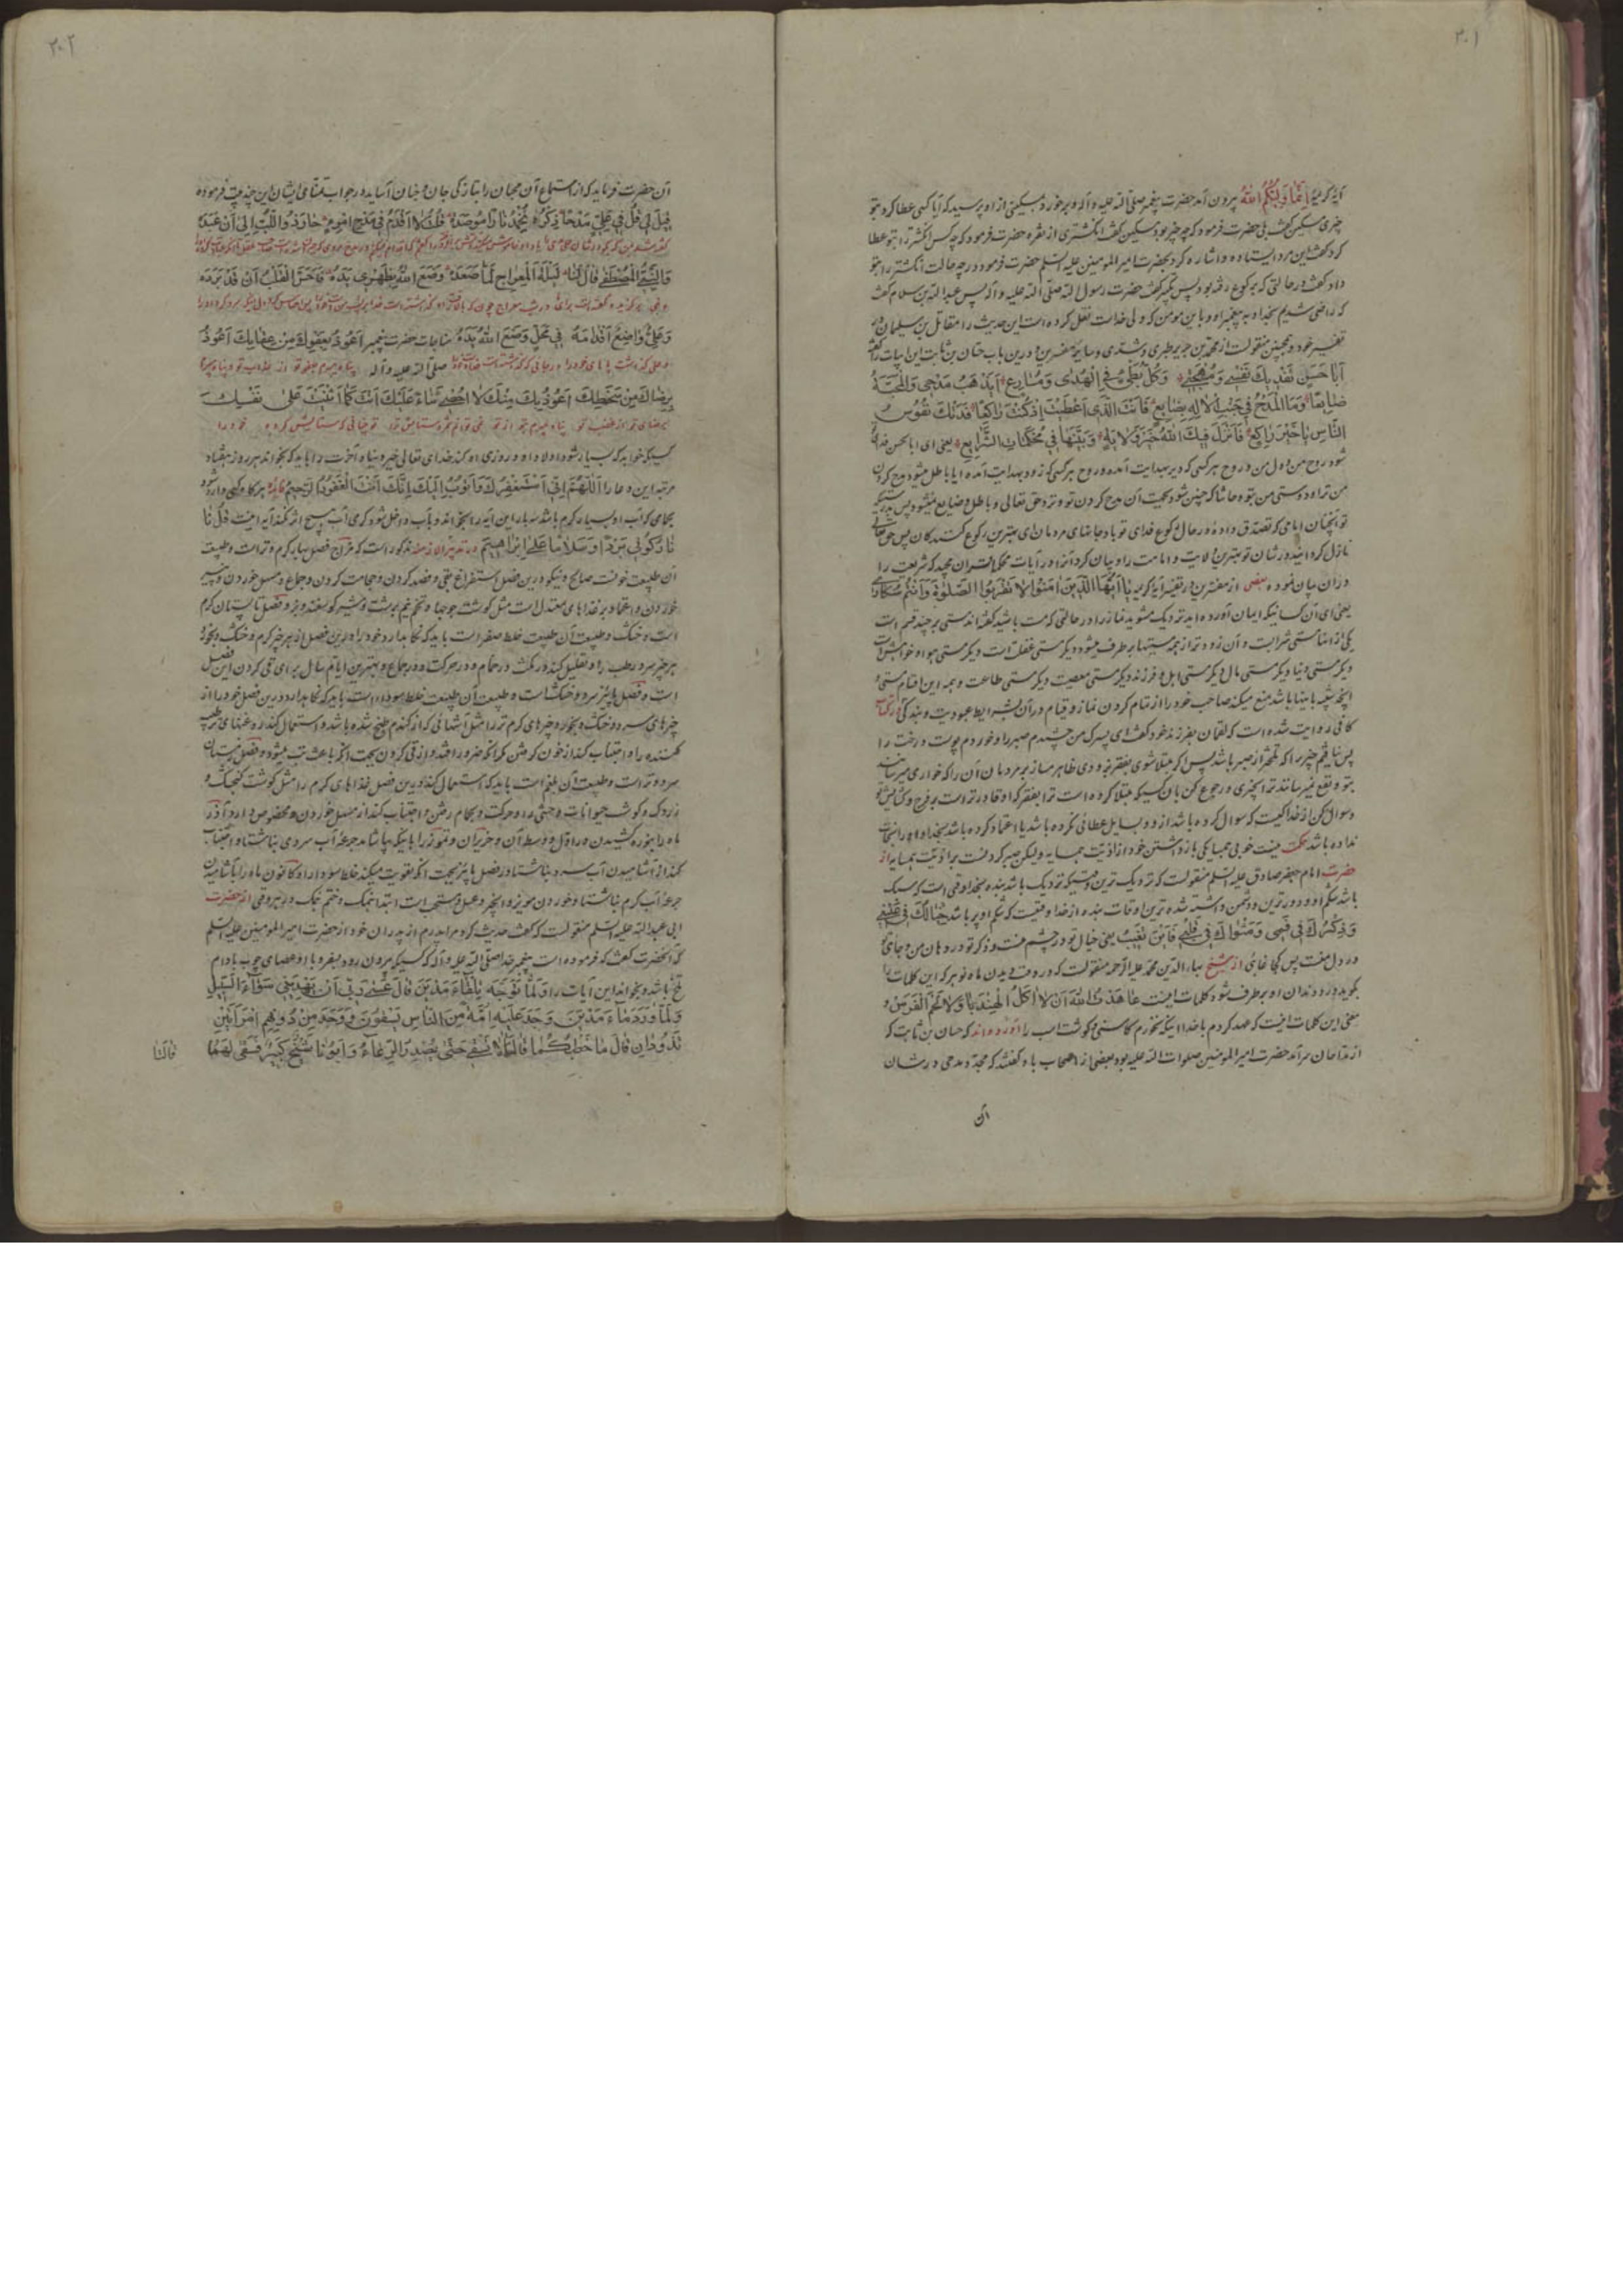 ۳۰۱
آیهٔ کریمهٔ اِنَّمَا وَلِیُّکُمُ اللهُ بیرون آمد حضرت پیغمبر صلّی الله علیه و آله و برخورد بمسکینی از او پرسید که آیا کسی عطا کرد بتو
چیزی مسکین گفت بلی حضرت فرمود که چه چیز بود مسکین گفت انگشتری از نقره حضرت فرمود که چه کس انگشتر را بتو عطا
کرد گفت این مرد ایستاده و اشاره کرد بحضرت امیر المومنین علیه السلم حضرت فرمود در چه حالت انگشتر را بتو
داد گفت در حالتی که برکوع رفته بود پس تکبیر گفت حضرت رسول الله صلّی الله علیه و آله پس عبد الله بن سلام گفت
که راضی شدیم بخدا و به پیغمبر او و باین مومن که ولی خداست نقل کرده است این حدیث را مقاتل بن سلیمان در
تفسیر خود و همچنین منقولست از محمد بن جریر طبری و سدی و سایر مفسرین و درین باب حسّان بن ثابت این ابیات را گفته
اَبا حَسَنٍ تَفْدِیكَ نَفْسِی وَ مُهْجَتِی وَ کُلُّ بَطِیءٍ فِی الْهُدٰی وَ مُسٰارِعِ اَیَذْهَبُ مَدْحِی وَ الْمُحَبَّةُ
ضٰایِعًا وَ مَا الْمَدْحُ فِی جَنْبِ الْاِلٰهِ بِضٰایِعٍ فَاَنْتَ الَّذِی اَعْطَیْتَ اِذْ کُنْتَ رٰاکِعًا فَدَتْكَ نُفُوسُ
النّٰاسِ یٰا خَیْرَ رٰاکِعٍ فَاَنْزَلَ فِیكَ اللهُ خَیْرَ وِلٰایَةٍ وَ بَیَّنَهٰا فِی مُحْکَمٰاتِ الشَّرٰایِعِ یعنی ای ابا الحسن فدای تو
شود روح من و دل من و روح هر کسی که دیر بهدایت آمده و روح هر کسی که زود بهدایت آمده آیا باطل میشود مدح کردن
من ترا و دوستی من بتو و حاشا که چنین شود بجهت آن مدح کردن تو نزد حق تعالی و باطل و ضایع نمیشود پس بدرستیکه
تو آنچنان امامی که تصدق داده در حال رکوع فدای تو باد جانهای مردمان ای بهترین رکوع کنندگان پس حق تعالی
نازل گردانید در شان تو بهترین ولایت و امامت را و بیان کرد آنرا در آیات محکمات قران مجید که شریعت را
در آن بیان نموده بعضی از مفسرین در تفسیر آیهٔ کریمه یٰا اَیُّهَا الَّذِینَ اٰمَنُوا لٰا تَقْرَبُوا الصَّلٰوةَ وَ اَنْتُمْ سُکٰارٰی
یعنی ای آن کسانیکه ایمان آورده اید نزدیک مشوید نماز را در حالتی که مست باشید گفته اند مستی بر چند قسم است
یکی از آنها مستی شرابست و آن زودتر از همه مستیها بر طرف میشود دیگر مستی غفلت است دیگر مستی هوا و خواهشهاست
دیگر مستی دنیا دیگر مستی مال دیگر مستی اهل و فرزند دیگر مستی معصیت دیگر مستی طاعت و همه این اقسام مستی و
آنچه شبیه باینها باشد منع میکند صاحب خود را از تمام کردن نماز و قیام در آن بشرایط عبودیت و بندگی از کتاب
کافی روایت شده است که لقمان بفرزند خود گفت ای پسرک من چشیدم صبر را و خوردم پوست درخت را
پس نیافتم چیزی را که تلختر از صبر باشد پس اگر مبتلا شوی بفقر خود و دی ظاهر مساز بر مردمان آن را که خواری میرسانند
بتو و نفع نمیرسانند ترا بچیزی و رجوع کن بان کسیکه مبتلا کرده است ترا بفقر که او قادرتر است بر فرج و گشایش تو
وسوال کن از خدا کیست که سوال کرده باشد از او و سایل عطائی نکرده باشد یا اعتماد کرده باشد بخدا و او را نجات
نداده باشد حکمت نیست خوبی همسایگی بازداشتن خود از اذیت همسایه ولیکن صبر کردنست بر اذیت همسایه از
حضرت امام جعفر صادق علیه السلم منقولست که نزدیک ترین وقتیکه نزدیک باشد بنده بخدا وقتی است که سبک
باشد شکم او و دورترین و دشمن داشته شده ترین اوقات بنده از خدا وقتیست که شکم او پر باشد خَیٰالُكَ فِی عَیْنِی
وَ ذِکْرُكَ فِی فَمِی وَ مَثْوٰاكَ فِی قَلْبِی فَاَیْنَ تَغِیبُ یعنی خیال تو در چشم منست و ذکر تو در دهان من و جای تو
در دل منست پس کجا غایبی از شیخ بهاء الدین محمد علیه الرّحمه منقولست که در وقت دیدن ماه نو هر که این کلمات را
بگوید درد دندان او بر طرف شود کلمات اینست عٰاهَدْتُ اللهَ اَنْ لٰا اٰکُلَ الْهِنْدَبٰا وَ لٰا لَحْمَ الْفَرَسِ و
معنی این کلمات اینست که عهد کردم با خدا اینکه نخورم کاسنی و گوشت اسب را آورده اند که حسان بن ثابت که
از مداحان سرآمد حضرت امیر المومنین صلوات الله علیه بود بعضی از اصحاب باو گفتند که مجددا مدحی در شان
آن
۳۰۲
آن حضرت فرماید که از استماع آن محبان را تازگی جان و جنان آساید در جواب تمنّای ایشان این چند بیت فرموده
قِیلَ لِی قُلْ فِی عَلِیٍّ مَدْحًا ذِکْرُهُ یُخْمِدُ نٰارًا مُوصَدَهْ قُلْتُ لٰا اَقْدَمُ فِی مَدْحِ امْرِءٍ حٰارَ ذُو اللُّبِّ اِلٰی اَنْ عَبَدَهْ
وَ النَّبِیُّ الْمُصْطَفٰی قٰالَ لَنٰا لَیْلَةَ الْمِعْرٰاجِ لَمّٰا صَعَدَهْ وَضَعَ اللهُ بِظَهْرِی یَدَهُ فَاَحَسَّ الْقَلْبُ اَنْ قَدْ بَرَدَهْ
وَ عَلِیٌّ وٰاضِعٌ اَقْدٰامَهُ فِی مَحَلٍّ وَضَعَ اللهُ یَدَهْ مناجات حضرت پیغمبر اَعُوذُ بِعَفْوِكَ مِنْ عِقٰابِكَ اَعُوذُ
صلّی الله علیه و آله پناه میبرم بعفو تو از عذاب تو و پناه میبرم
بِرِضٰاكَ مِنْ سَخَطِكَ اَعُوذُ بِكَ مِنْكَ لٰا اُحْصِی ثَنٰاءً عَلَیْكَ اَنْتَ کَمٰا اَثْنَیْتَ عَلٰی نَفْسِكَ
برضای تو از غضب تو پناه میبرم بتو از تو نمی توانم شمرد ستایش ترا تو چنانی که ستایش کرده خود را
کسیکه خواهد که بسیار شود اولاد او و روزی او کند خدای تعالی خیر دنیا و آخرت را باید که بخواند هر روز هفتاد
مرتبه این دعا را اَللّٰهُمَّ اِنِّی اَسْتَغْفِرُكَ وَ اَتُوبُ اِلَیْكَ اِنَّكَ اَنْتَ الْغَفُورُ الرَّحِیمُ فایده هر گاه کسی وارد شود
بحمامی که آب او بسیار گرم باشد سه بار این آیه را بخواند و بآب داخل شود گرمی آب هیچ اثر نکند آیه اینست قُلْنٰا
نٰارُ کُونِی بَرْدًا وَ سَلٰامًا عَلٰی اِبْرٰاهِیمَ مذکور است که مزاج فصل بهار گرم و تر است و طبیعت
آن طبیعت خونست صالح و نیکو درین فصل استفراغ بقی و فصد کردن و حجامت کردن و جماع و مسهل خوردن و پنیر
خوردن و اعتماد بر غذاهای معتدل است مثل گوشت جوجها و تخم نیم برشت و شیر گوسفند و بز و فصل تابستان گرم
است و خشک و طبیعت آن طبیعت خلط صفر است باید که نگاهدارد خود را درین فصل از هر چیز گرم و خشک و بخورد
هر چیز سرد رطب را و تقلیل کند در مکث در حمام و در حرکت و در جماع و بهترین ایام سال برای قی کردن این فصل
است و فصل پاییز سرد و خشک است و طبیعت آن طبیعت خلط سوداست باید که نگاهدارد درین فصل خود را از
چیزهای سرد و خشک و بخورد چیزهای گرم تر را مثل آشهائی که از گندم طبخ شده باشد و استعمال کند روغنهای رطب
کننده را و اجتناب کند از خون کم کردن مگر آنکه ضرور افتد و از قی کردن بجهت آنکه باعث تب میشود و فصل زمستان
سرد و تر است و طبیعت آن بلغم است باید که استعمال کند درین فصل غذاهای گرم را مثل گوشت گنجشک و
زردک و گوشت حیوانات وحشی را و حرکت و بحمام رفتن و اجتناب کند از مسهل خوردن و مخصوص دارد آذر
ماه را بنوره کشیدن در اوّل و وسط آن و حزیران و تموز را باینکه بیاشامد جرعهٔ آب سردی بناشتا و اجتناب
کند از آشامیدن آب سرد بناشتا در فصل پاییز بجهت آنکه تقویت میکند خلط سودا را و کانون ماه را بآشامیدن
جرعهٔ آب گرم بناشتا و خوردن مویز و انجیر و عسل و مستحب است ابتدا بنمک و ختم بنمک در هر وقتی از حضرت
ابی عبد الله علیه السلم منقولست که گفت حدیث کرد مرا پدرم از پدران خود از حضرت امیر المومنین علیه السلم
که آنحضرت گفت که فرموده است پیغمبر خدا صلّی الله علیه و آله که کسیکه بیرون رود بسفر و با او عصای چوب بادام
تلخ باشد و بخواند این آیات را وَ لَمّٰا تَوَجَّهَ تِلْقٰاءَ مَدْیَنَ قٰالَ عَسٰی رَبِّی اَنْ یَهْدِیَنِی سَوٰاءَ السَّبِیلِ
وَ لَمّٰا وَرَدَ مٰاءَ مَدْیَنَ وَجَدَ عَلَیْهِ اُمَّةً مِنَ النّٰاسِ یَسْقُونَ وَ وَجَدَ مِنْ دُونِهِمُ امْرَاَتَیْنِ
تَذُودٰانِ قٰالَ مٰا خَطْبُکُمٰا قٰالَتٰا لٰا نَسْقِی حَتّٰی یُصْدِرَ الرِّعٰاءُ وَ اَبُونٰا شَیْخٌ کَبِیرٌ فَسَقٰی لَهُمٰا
قٰالَتٰا